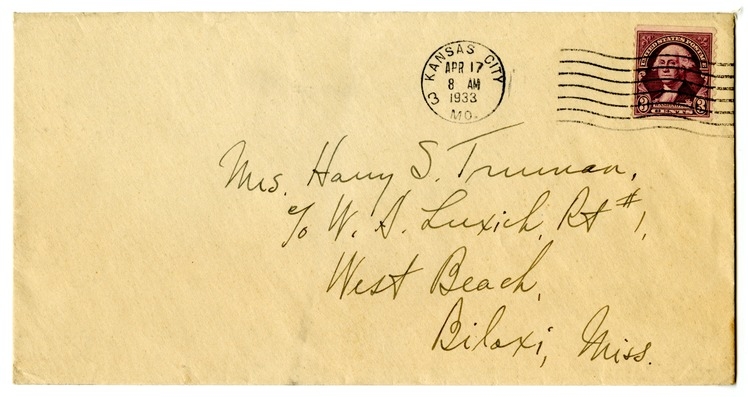 KANSAS CITY
APR 17
8 AM
1933
MO.
3
UNITED STATES POSTAGE
3 3
CENTS
Mrs. Harry S. Truman,
c/o W. A. Luxich, Rt #1,
West Beach,
Biloxi, Miss.